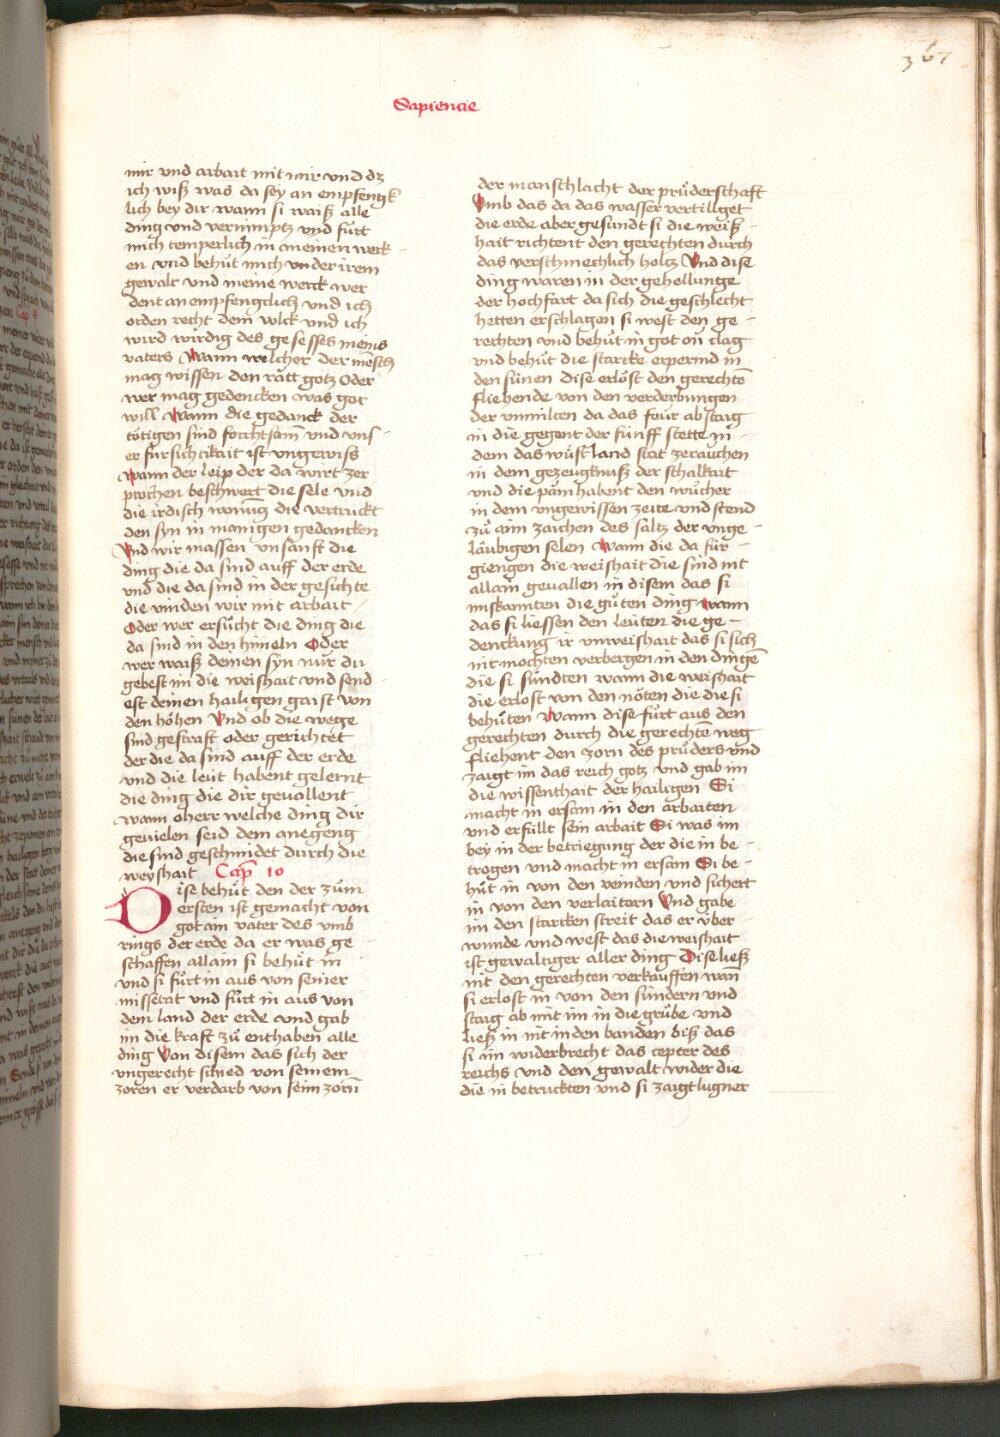 367
Sapiencie
mir vnd arbait mit mir vnd dz
ich wiß was da sey an empfengk
lich bey dir wann si waiß alle
ding vnd vernimptz vnd fu͑rt
mich temperlich in meinen werk-
en vnd behu͑t mich vnder irem
gewalt vnd meine werck wer
dent an empfengclich vnd ich
orden recht dem volck vnd ich
wird wirdig des gesesses meins
vaters Wann welcher der mēsch
mag wissen den ratt gotz Oder
wer mag gedencken was got
will Wann die gedanck der
tötigen sind forchtsam vnd vns-
er fu͑rsichtikait ist vngewiss
Wann der leip der da wirt zer
prochen beschwert die sele vnd
die irdisch wonūg die vertruckt
den syn in manigen gedancken
Vnd wir massen vnsanft die
ding die da sind auff der erde
vnd die da sind in der gesichte
die vinden wir mit arbait
Oder wer ersu͑cht die ding die
da sind in den himeln Oder
wer waiß deinen syn nur du
gebest im die weishait vnd send-
est deinen hailigen gaist von
den höhen Vnd ob die wege
sind gestraft oder gerichtet
der die da sind auff der erde
vnd die leut habent gelernt
die ding die dir geuollent
wann o herr welche ding dir
geuielen seid dem anegeng
die sind geschmidet durch die
weyshait Cap̄ 10
Dise behu͑t den der zu͑m
ersten ist gemacht von
got ain vater des vmb
rings der erde da er was ge
schaffen allain si behu͑t in
vnd si fu͑rt in aus von seiner
missetat vnd fu͑rt in aus von
dem land der erde vnd gab
im die kraft zu͑ enthaben alle
ding Von disem das sich der
vngerecht schied von seinem
zoren er verdarb von seim zorn
der manschlacht der pru͑derschaft
Vmb das da das wasser vertillget
die erde aber gesundt si die weiß-
hait richtent den gerechten durch
das verschmechlich holtz Vnd dise
ding waren in der gehellunge
der hochfart da sich die geschlecht
hetten erschlagen si west den ge-
rechten vnd behu͑t in got on clag
vnd behu͑t die starcke erpermd in
den su͑nen dise erlöst den gerechtē
fliehende von den verderbungen
der vnmilten da das feur ab staig
in die gegent der fu͑nff stette in-
dem das wu͑st land stat zerauchen
in dem gezeugknuß der schalkait
vnd die päm habent den wu͑cher
in dem vngewissen zeite vnd stend
zu͑ aim zaichen des saltz der vnge-
läubigen selen Wann die da fu͑r-
giengen die weishait die sind nit
allain geuallen in disem das si
miskannten die gu͑ten ding wann
das si liessen den leuten die ge-
denckung ir vnweishait das si sich
nit mochten verbergen in den dingē
die si su͑ndten wann die weishait
die erlost von den nöten die die si
behu͑ten Wann dise fu͑rt aus den
gerechten durch die gerechte weg
fliehent den zorn des pru͑ders vnd
zaigt im das reich gotz vnd gab im
die wissenthait der hailigen Si
macht in ersam in den arbaiten
vnd erfüllt sein arbait Si was im
bey in der betriegung der die in be-
trogen vnd macht in ersam Si be-
hu͑t in von den veinden vnd sichert
in von den verlaitern Vnd gabe
im den starcken streit das er u͑ber-
wunde vnd west das die weishait
ist gewaltiger aller ding Dise ließ
nit den gerechten verkauffen wan̄
si erlost in von den su͑ndern vnd
staig ab mit im in die gru͑be vnd
ließ in nit in den banden biß das
si im widerbrecht das cepter des
reichs vnd den gewalt wider die
die in betruckten vnd si zaigt lugner